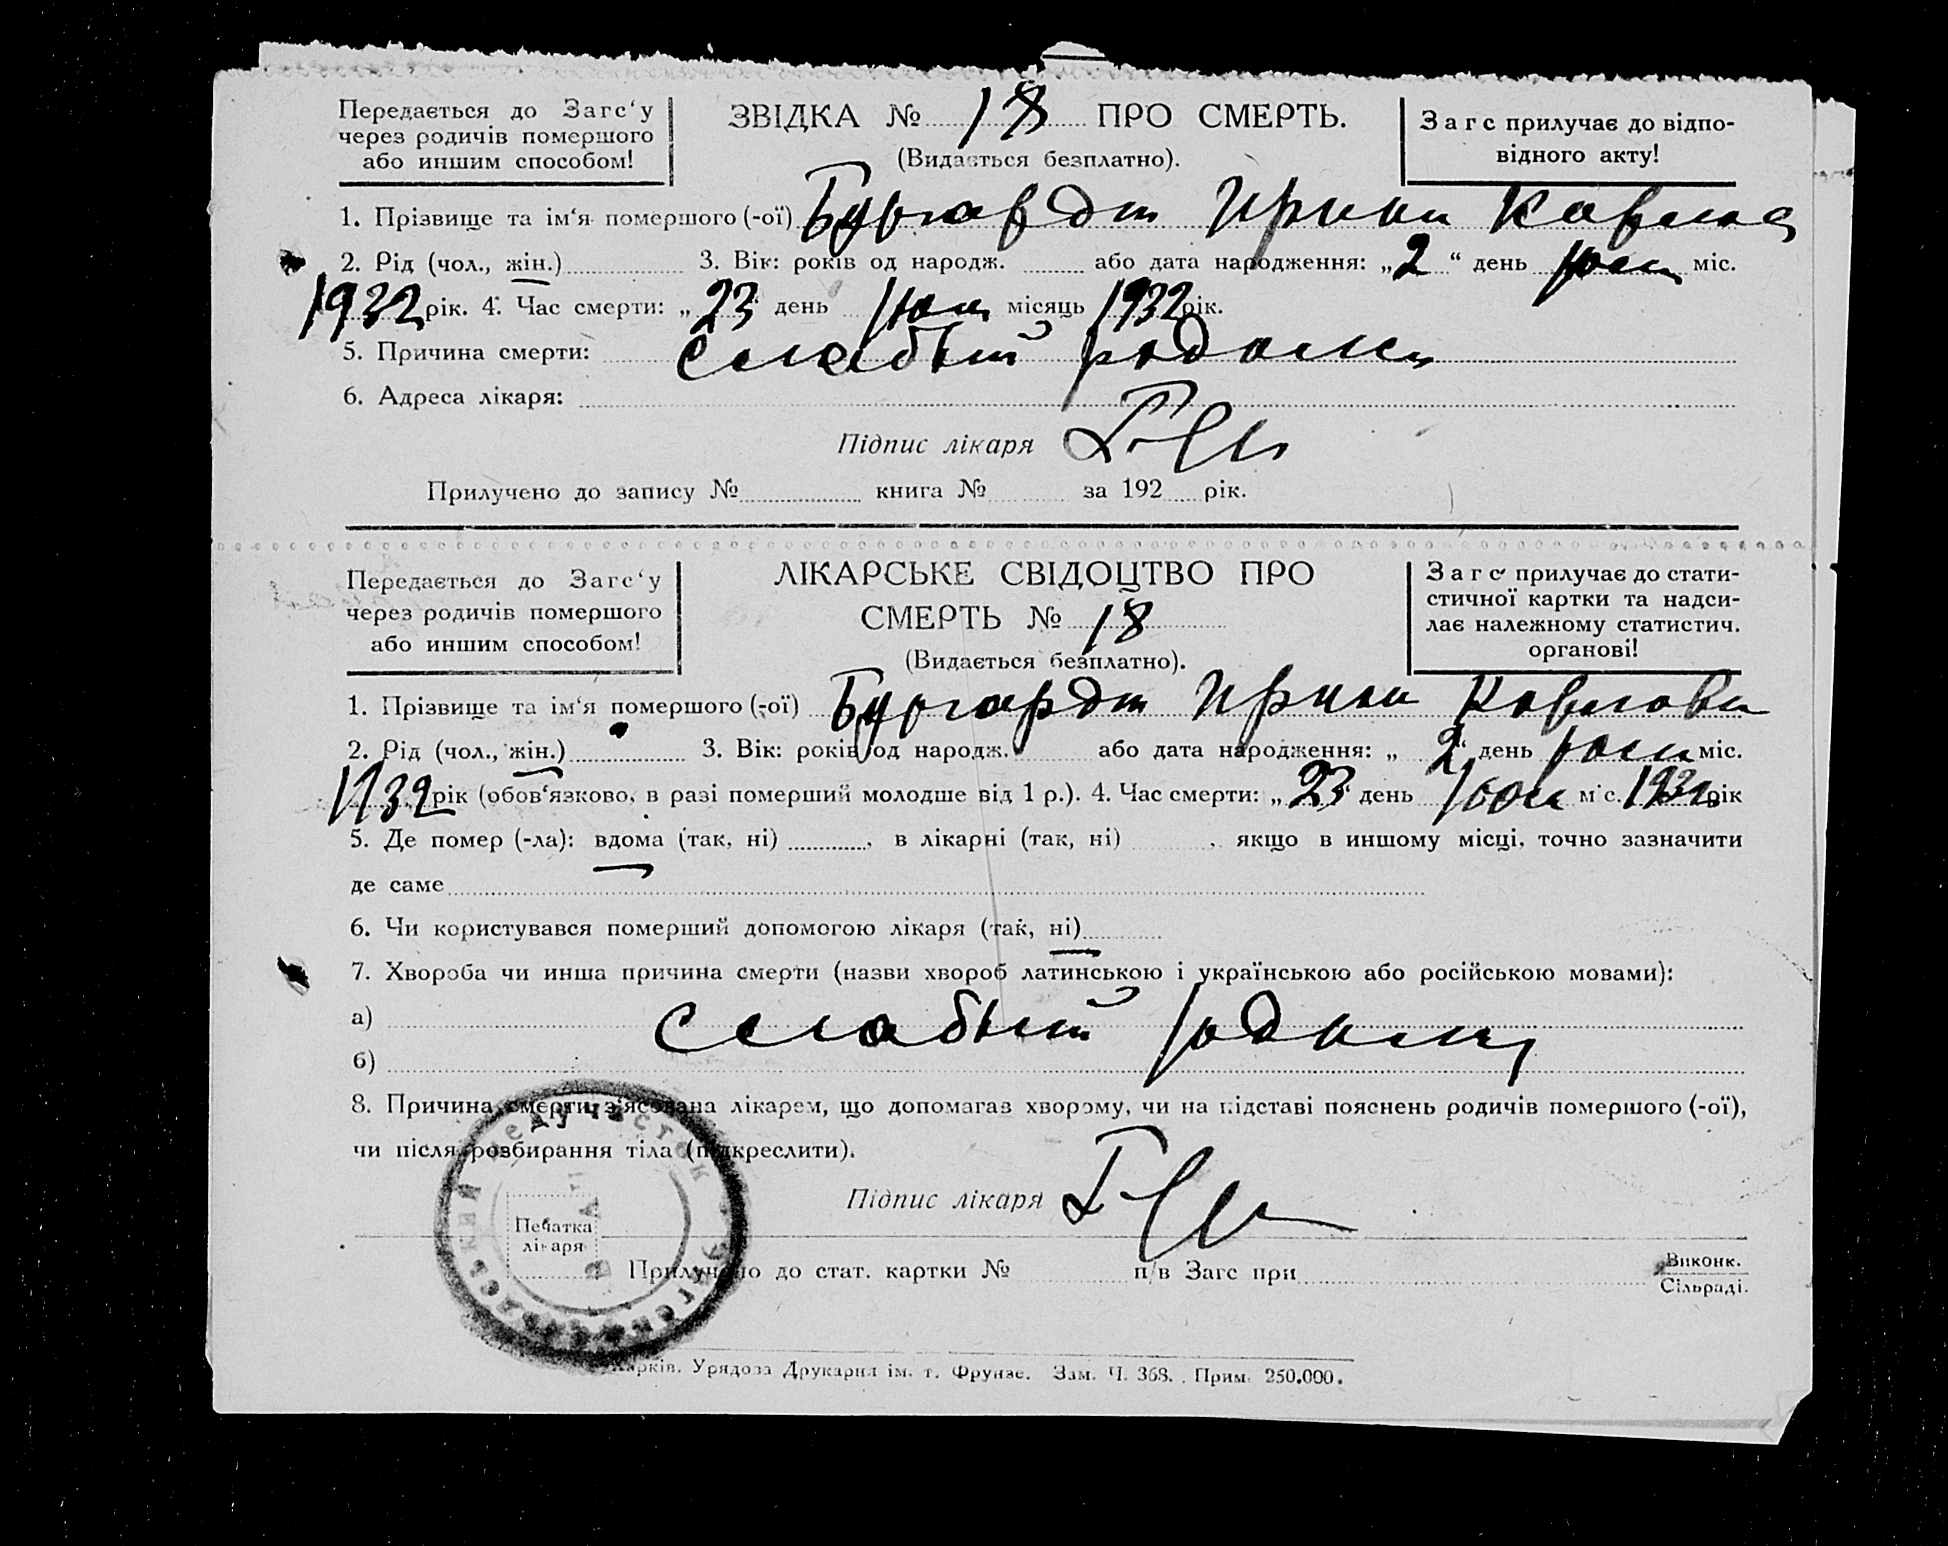 Передається до Загс‘у
через родичів помершого
або иншим способом!
ЗВІДКА № 18 ПРО СМЕРТЬ.
(Видається безплатно).
Загс прилучає до відпо-
відного акту!
1. Прізвище та ім‘я помершого (-ої) Бургардт Ирина
2. Рід (чол., жін.) 3. Вік: років од народж. або дата народження: „2“ день міс.
1932 рік. 4. Час смерти: „23“ день місяць 1932 рік.
5. Причина смерти: слабый
6. Адреса лікаря:
Підпис лікаря
Прилучено до запису № книга № за 192 рік.
Передається до Загс‘у
через родичів помершого
або иншим способом!
ЛІКАРСЬКЕ СВІДОЦТВО ПРО
СМЕРТЬ № 18
(Видається безплатно).
Загс прилучає до стати-
стичної картки та надси-
лає належному статистич.
органові!
1. Прізвище та ім‘я помершого (-ої) Бургардт Ирина Карлова
2. Рід (чол., жін.) 3. Вік: років од народж. або дата народження: „2“ день міс.
1932 рік (обов‘язково, в разі померший молодше від 1 р.). 4. Час смерти: „23“ день міс. 1932 рік
5. Де помер (-ла): вдома (так, ні) , в лікарні (так, ні) , якщо в иншому місці, точно зазначити
де саме
6. Чи користувався померший допомогою лікаря (так, ні)
7. Хвороба чи инша причина смерти (назви хвороб латинською і українською або російською мовами):
а) слабый
б)
8. Причина смерти з‘ясована лікарем, що допомагав хворому, чи на підставі пояснень родичів помершого (-ої),
чи після розбирання тіла (підкреслити).
Підпис лікаря
Печатка
лікаря
Прилучено до стат. картки № п/в Загс при
Виконк.
Сільраді.
Харків. Урядова Друкарня ім. т. Фрунзе. Зам. Ч. 368. Прим. 250.000.